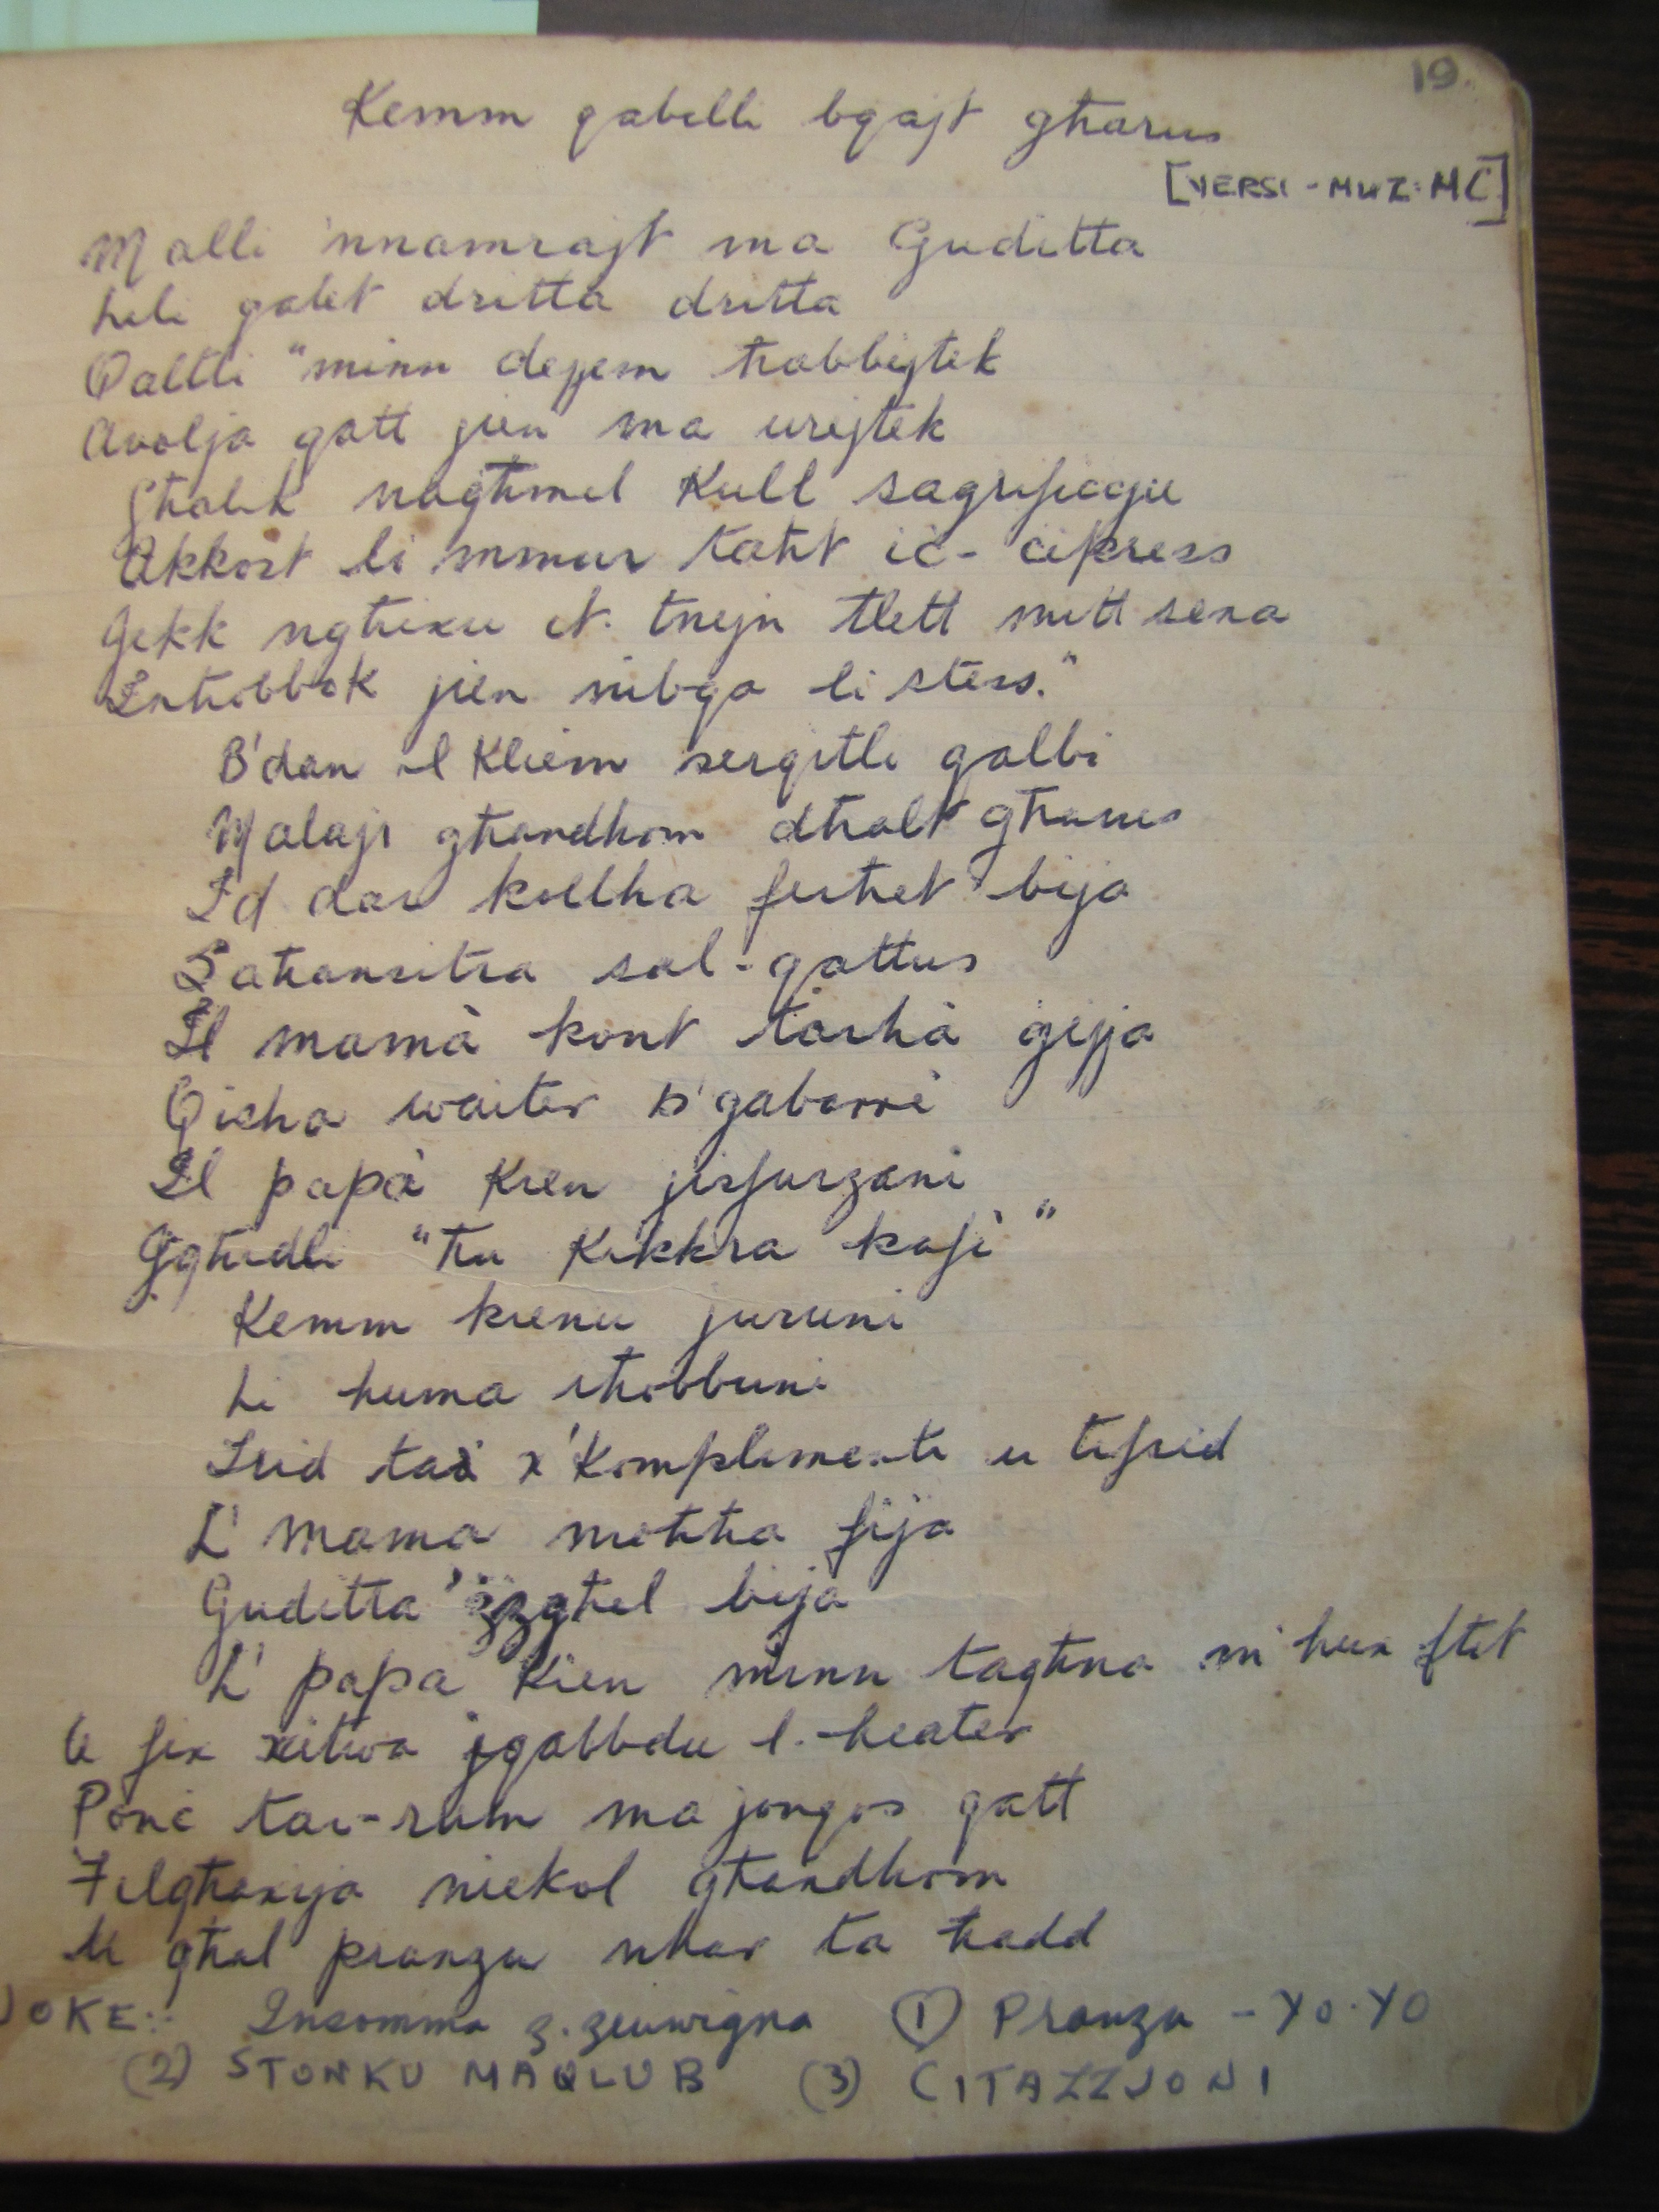 19.
Kemm qabelli bqajt għarus
[VERSI - MUZ: MC]
Malli 'nnamrajt ma Guditta
hili qalet dritta dritta
Qaltli "minn dejjem ħabbejtek
Avolja qatt jien ma urejtek
Għalik nagħmel kull sagrifiċċju
Akkost li mmur taħt iċ-ċipress
Jekk ngħixu it-tnejn tlett mitt sena
Inħobbok jien nibqa li stess."
B'dan il kliem serqitli qalbi
Malajr għandhom dħalt għarus
Id dar kollha ferħet bija
Saħansitra sal-qattus
Il mamà kont tarhà ġejja
Qisha waiter b'gabarrè
Il papà kien jisfurzani
Jgħidli "ħu kikkra kafè"
Kemm kienu juruni
Li huma iħobbuni
Trid taà x'komplimenti u tifrid
L' mama moħħa fija
Guditta 'żżgħel bija
L' papa kien minn tagħna m'hux ftit
U fix-xitwa jqabbdu l-heater
Ponċ tar-rum ma jonqos qatt
Filgħaxija niekol għandhom
U għal pranzu nhar ta ħadd
JOKE:- Insomma ż-żeuwiġna (1) Pranzu - YO-YO
(2) STONKU MAQLUB (3) CITAZZJONI